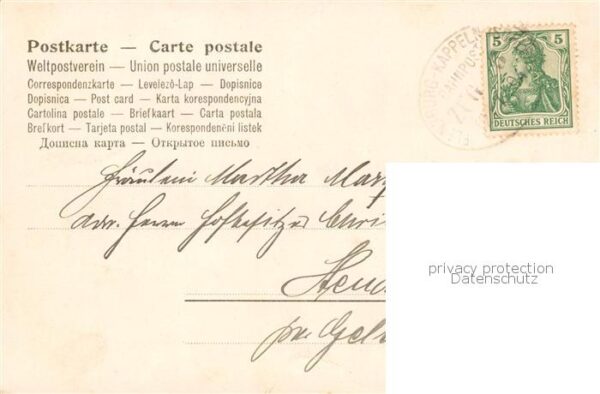 Postkarte — Carte postale
Weltpostverein — Union postale universelle
Correspondenzkarte — Levelező-Lap — Dopisnice
Dopisnica — Post card — Karta korespondencyjna
Cartolina postale — Briefkaart — Carta postala
Brefkort — Tarjeta postal — Korespondenční lístek
Дописна карта — Открытое письмо
5 5
DEUTSCHES REICH
KAPPELN
BAHNPOST
Fräulein Martha
Adr. Herrn Hofbesitzer
pr. Gel
privacy protection
Datenschutz